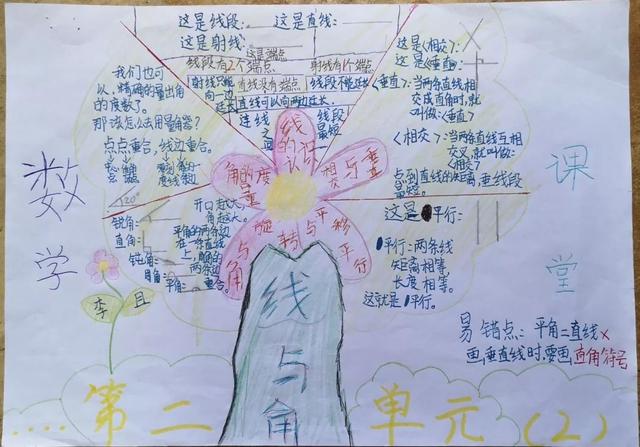 这是线段: 这是直线:
这是射线: 这是端点
线段有2个端点 射线有1个端点
射线只能向一边 直线没有端点 线段不能延长
延长 直线可以向两边延长
连线之 线段最短
我们也可
以,精确的量出角
的度数了。
那该怎么去用量角器?
点点重合,线边重合。
120°
锐角:
直角:
钝角:
平角:
开口越大
角越大。
平角的两条边
在一条直线
上,
重合。
这是《相交7:
这是《垂直7:
《垂直7:当两条直线相
交成直角时,就
叫做:《垂直7
《相交7:当两条直线互相
交叉,就叫做:
《相交7
点到直线的距离 垂线段
最短。
这是平行:
平行:两条线
距离相等
长度相等。
这就是平行。
线的认识
相交与垂直
平移与平行
旋转与角
角的度量
数学
课堂
李
且
线与角
易错点:平角=直线×
画垂直线时,要画直角符号
....第二单元(2)